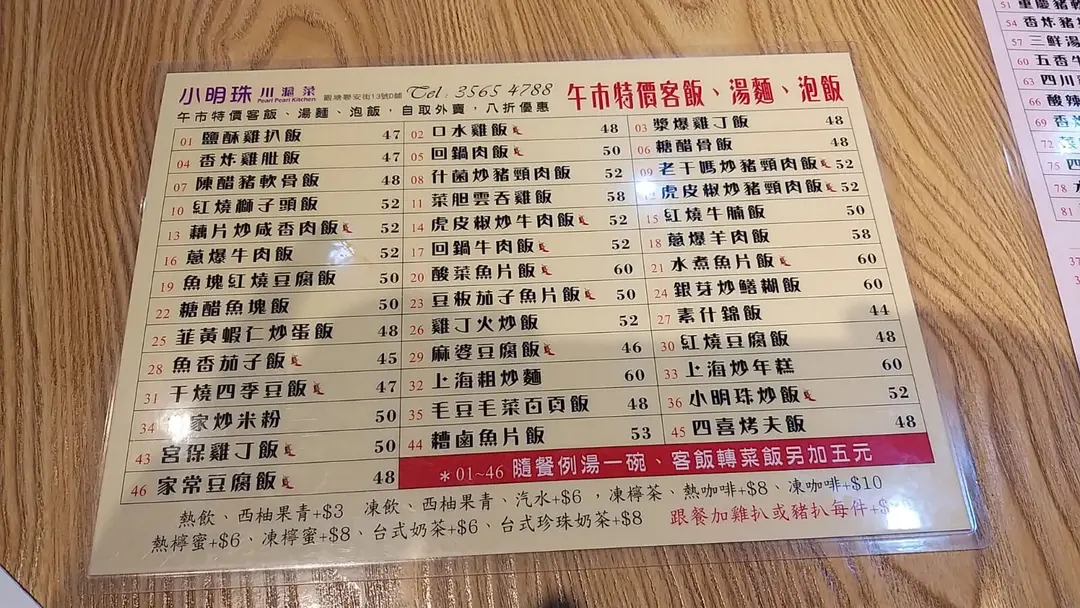 小明珠 川滬菜 觀塘聯安街13號D舖 Tel: 3565 4788 午市特價客飯、湯麵、泡飯
Pearl Pearl Kitchen
午市特價客飯、湯麵、泡飯，自取外賣，八折優惠
01 鹽酥雞扒飯 47 02 口水雞飯 48 03 漿爆雞丁飯 48
04 香炸雞肶飯 47 05 回鍋肉飯 50 06 糖醋骨飯 48
07 陳醋豬軟骨飯 48 08 什菌炒豬頸肉飯 52 09 老干媽炒豬頸肉飯 52
10 紅燒獅子頭飯 52 11 菜胆雲吞雞飯 58 虎皮椒炒豬頸肉飯 52
13 藕片炒咸香肉飯 52 14 虎皮椒炒牛肉飯 52 15 紅燒牛腩飯 50
16 蔥爆牛肉飯 52 17 回鍋牛肉飯 52 18 蔥爆羊肉飯 58
19 魚塊紅燒豆腐飯 50 20 酸菜魚片飯 60 21 水煮魚片飯 60
22 糖醋魚塊飯 50 23 豆板茄子魚片飯 50 24 銀芽炒鱔糊飯 60
25 韮黃蝦仁炒蛋飯 48 26 雞丁火炒飯 52 27 素什錦飯 44
28 魚香茄子飯 45 29 麻婆豆腐飯 46 30 紅燒豆腐飯 48
31 干燒四季豆飯 47 32 上海粗炒麵 60 33 上海炒年糕 60
34 家炒米粉 50 35 毛豆毛菜百頁飯 48 36 小明珠炒飯 52
43 宮保雞丁飯 50 44 糟鹵魚片飯 53 45 四喜烤夫飯 48
46 家常豆腐飯 48 *01~46 隨餐例湯一碗、客飯轉菜飯另加五元
熱飲、西柚果青+$3 凍飲、西柚果青、汽水+$6，凍檸茶、熱咖啡+$8、凍咖啡+$10
熱檸蜜+$6、凍檸蜜+$8、台式奶茶+$6、台式珍珠奶茶+$8 跟餐加雞扒或豬扒每件+$
51 重慶豬
54 香炸豬
57 三鮮湯
60 五香牛
63 四川
66 酸辣
69 香
72
75 四
78
81
37